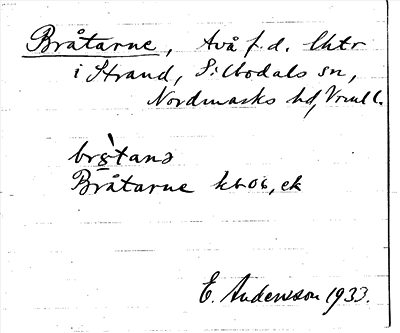 Bråtarne, två f.d. lhtr
i Strand, Silbodals sn,
Nordmarks hd, Vrml l.
brå̀tanə
Bråtarne kb 06, ek
E. Andersson 1933.